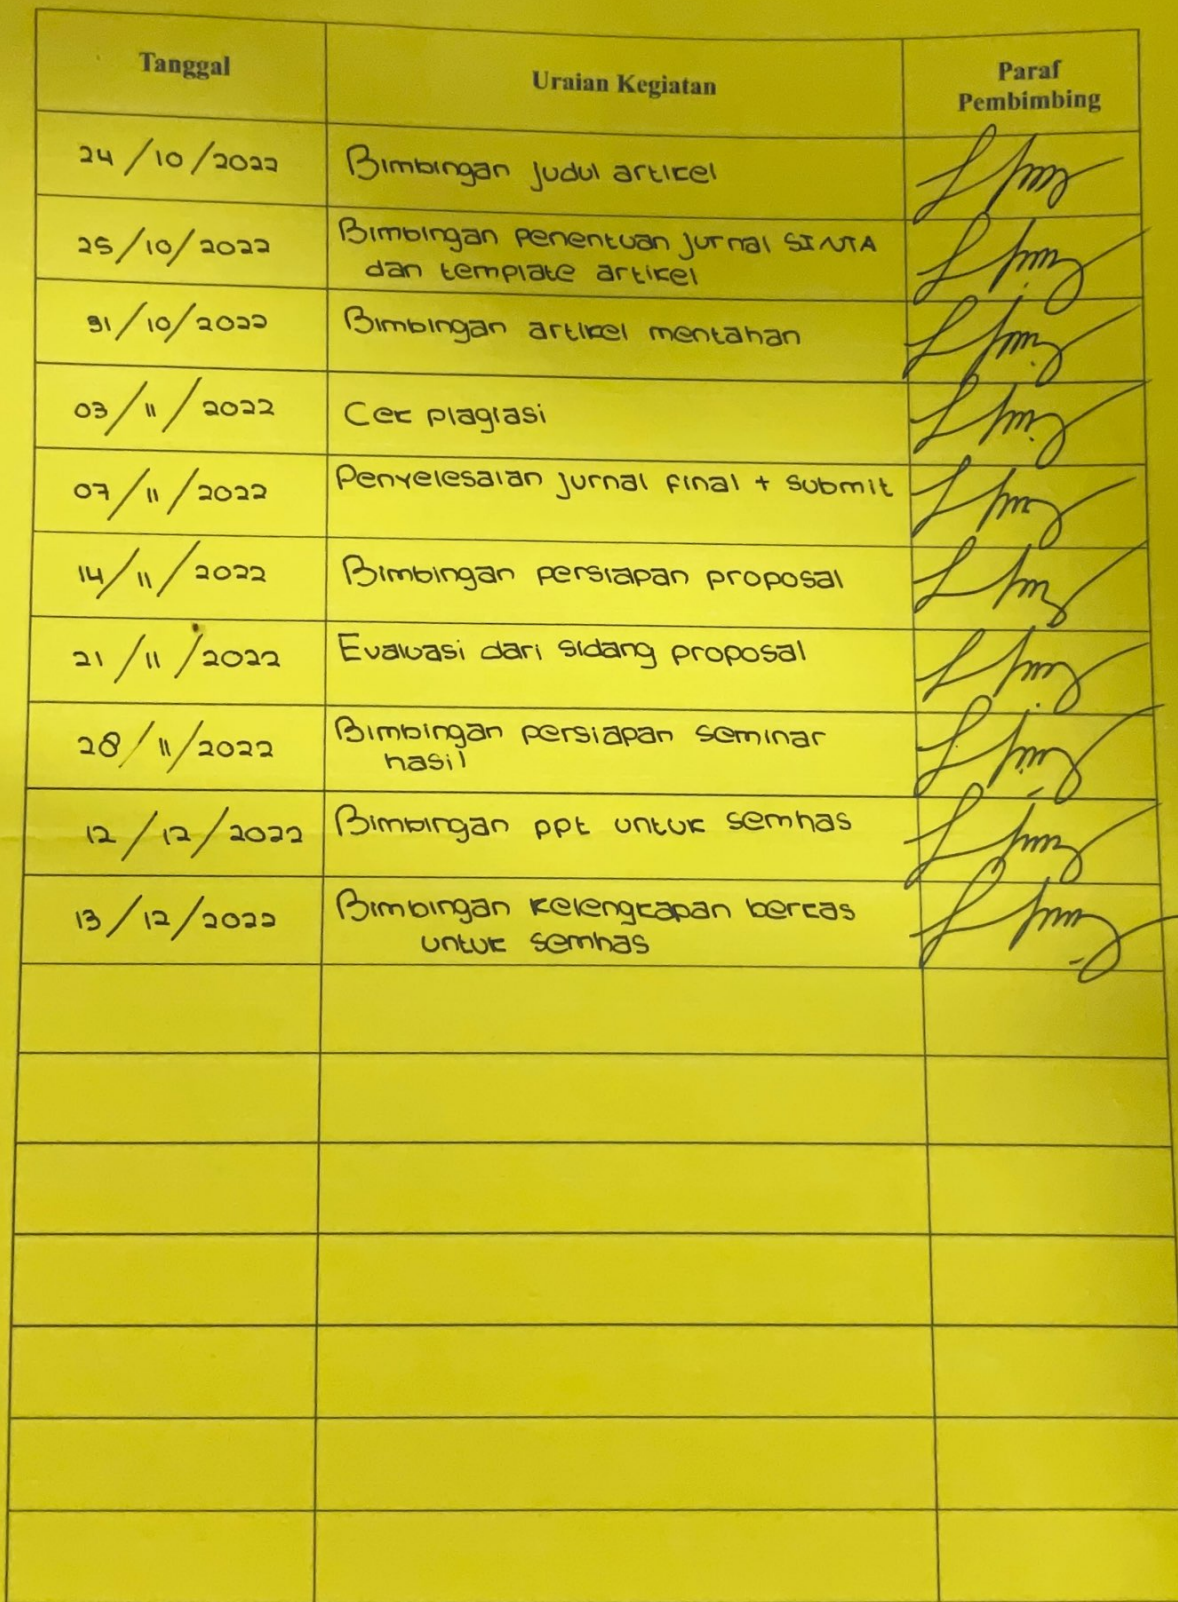 Tanggal
Uraian Kegiatan
Paraf
Pembimbing
24/10/2022
Bimbingan judul artikel
25/10/2022
Bimbingan penentuan jurnal SINTA
dan template artikel
31/10/2022
Bimbingan artikel mentahan
03/11/2022
Cek plagiasi
07/11/2022
Penyelesaian jurnal final + submit
14/11/2022
Bimbingan persiapan proposal
21/11/2022
Evaluasi dari sidang proposal
28/11/2022
Bimbingan persiapan seminar
hasil
12/12/2022
Bimbingan ppt untuk semhas
13/12/2022
Bimbingan kelengkapan berkas
untuk semhas